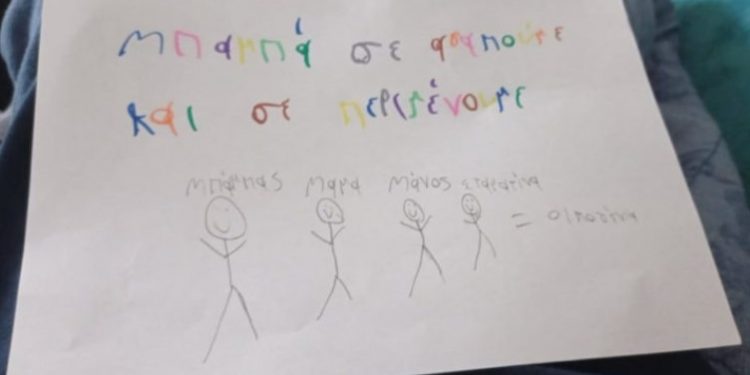 Μπαμπά σε αγαπούμε
και σε περιμένουμε
Μπάμπας Μαμα Μάνος Σταματίνα
=